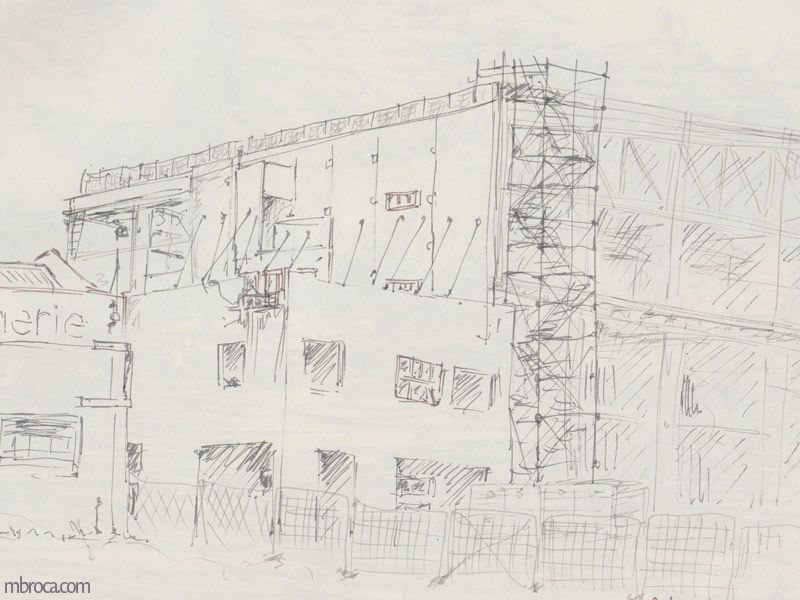 nerie
mbroca.com